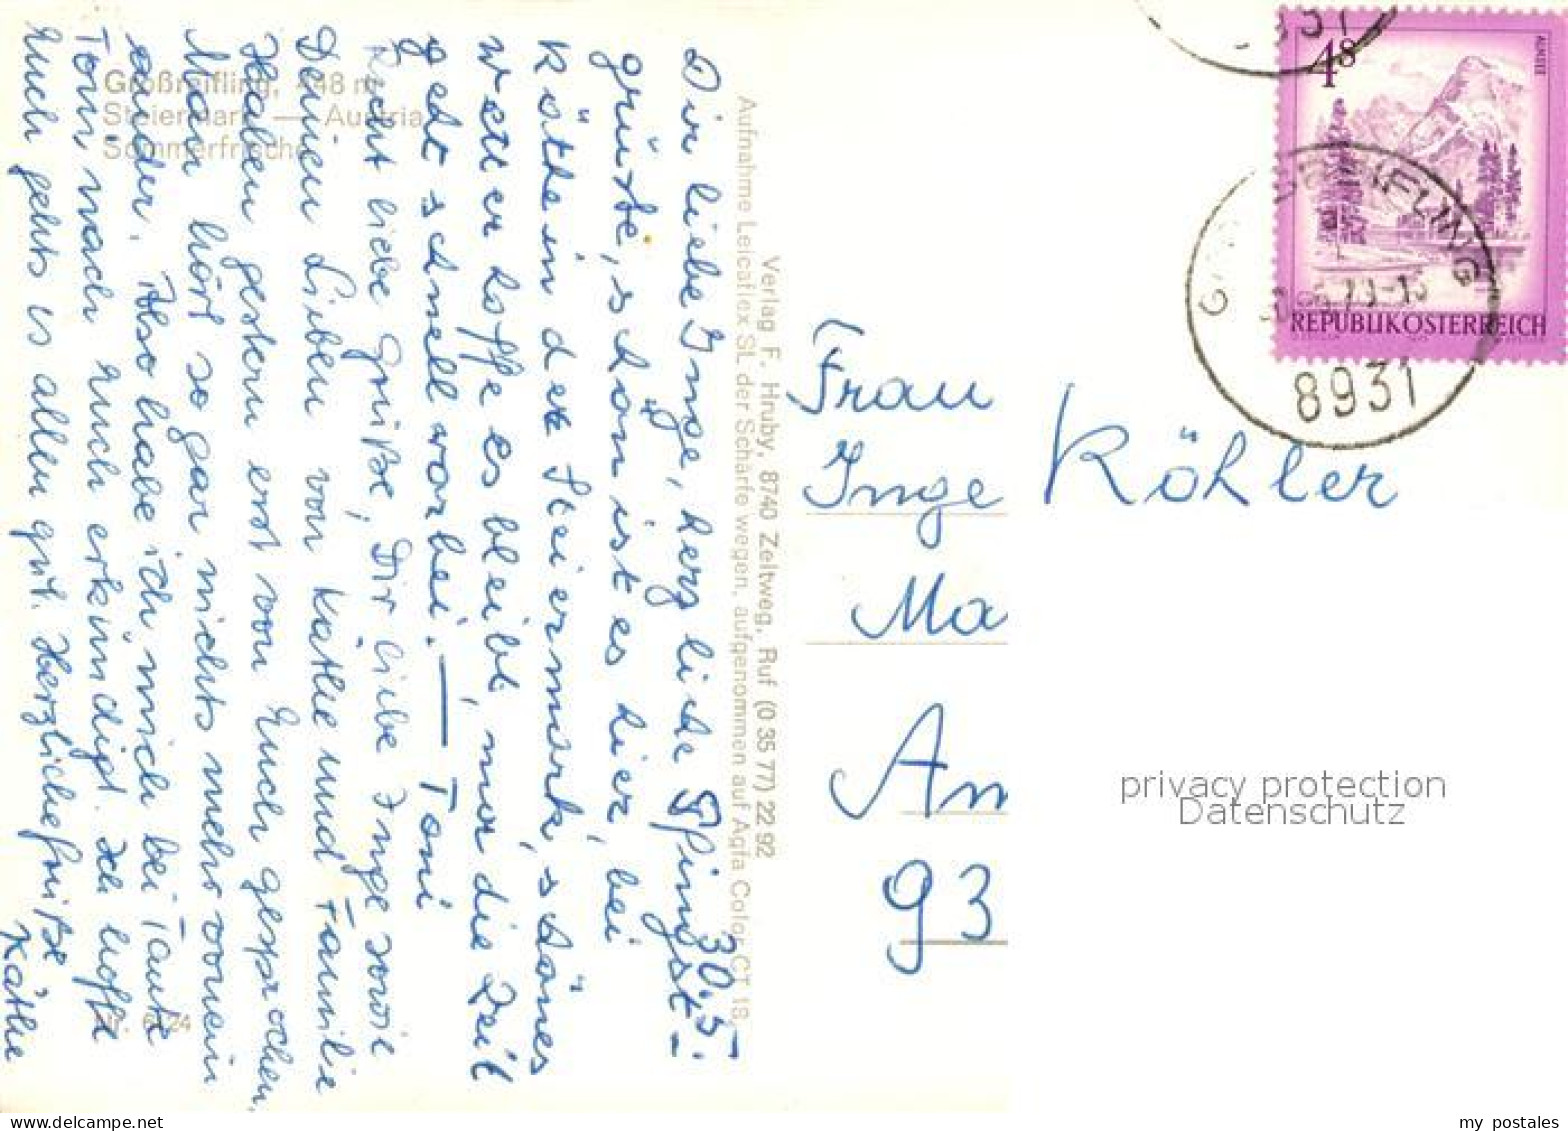 Großreifling, 448 m
Steiermark — Austria
Sommerfrische
30.5.
Dir liebe Inge, herzliche Pfingst-
grüße, schön ist es hier, bei
Käthe in der Steiermark, schönes
Wetter hoffe es bleibt, nur die Zeit
geht schnell vorbei. — Toni
Recht liebe Grüße, Dir liebe Inge sowie
Deinen Lieben von Käthe und Familie
Haben gestern erst von Euch gesprochen.
Man hört so gar nichts mehr vonein
ander. Also habe ich mich bei Tante
Toni nach Euch erkundigt. Ich hoffe
Euch gehts es allen gut. Herzliche Grüße
Käthe
Verlag F. Hruby, 8740 Zeltweg, Ruf (0 35 77) 22 92
Aufnahme Leicaflex SL der Schärfe wegen, aufgenommen auf Agfa Color CT 18
4 S
ALMSEE
REPUBLIK ÖSTERREICH
8931
Frau
Inge Köhler
Ma
An
93
privacy protection
Datenschutz
my postales